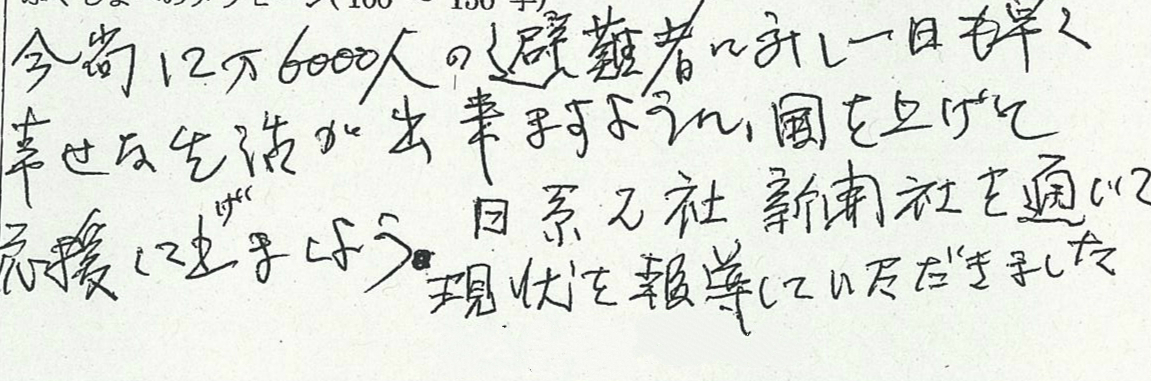 今尚12万6000人の避難者に対し一日も早く
幸せな生活が出来ますように、国を上げて
応援して上げましよう。日系2社新聞社を通じて
現状を報導していただきました